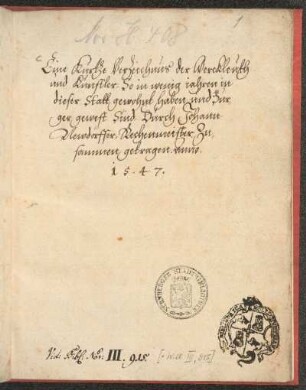 1
Eine Kurtze Verzeichnus der Werckleuth
und Künstler So in wenig jahren in
dieser Statt gewohnt haben und Bur
ger gewest sind Durch Johann
Neudörffer Rechenmeister Zu
sammen getragen anno
1 5 4 7 .
Vide Bibl. Nor. III. 915